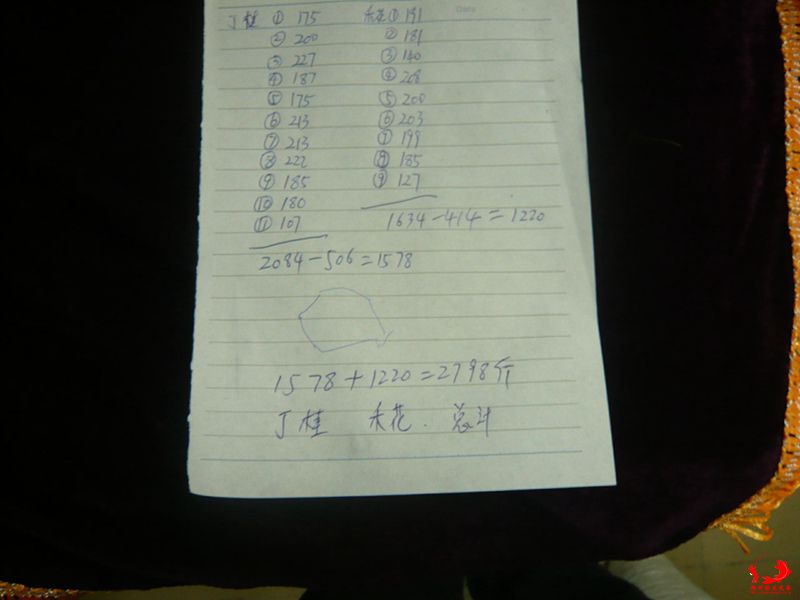 丁桂 ① 175 禾花 ① 191
② 200 ② 181
③ 227 ③ 140
④ 187 ④ 208
⑤ 175 ⑤ 200
⑥ 213 ⑥ 203
⑦ 213 ⑦ 199
⑧ 222 ⑧ 185
⑨ 185 ⑨ 127
⑩ 180
⑪ 107 1634-414=1220
2084-506=1578
1578+1220=2798斤
丁桂 禾花. 总计